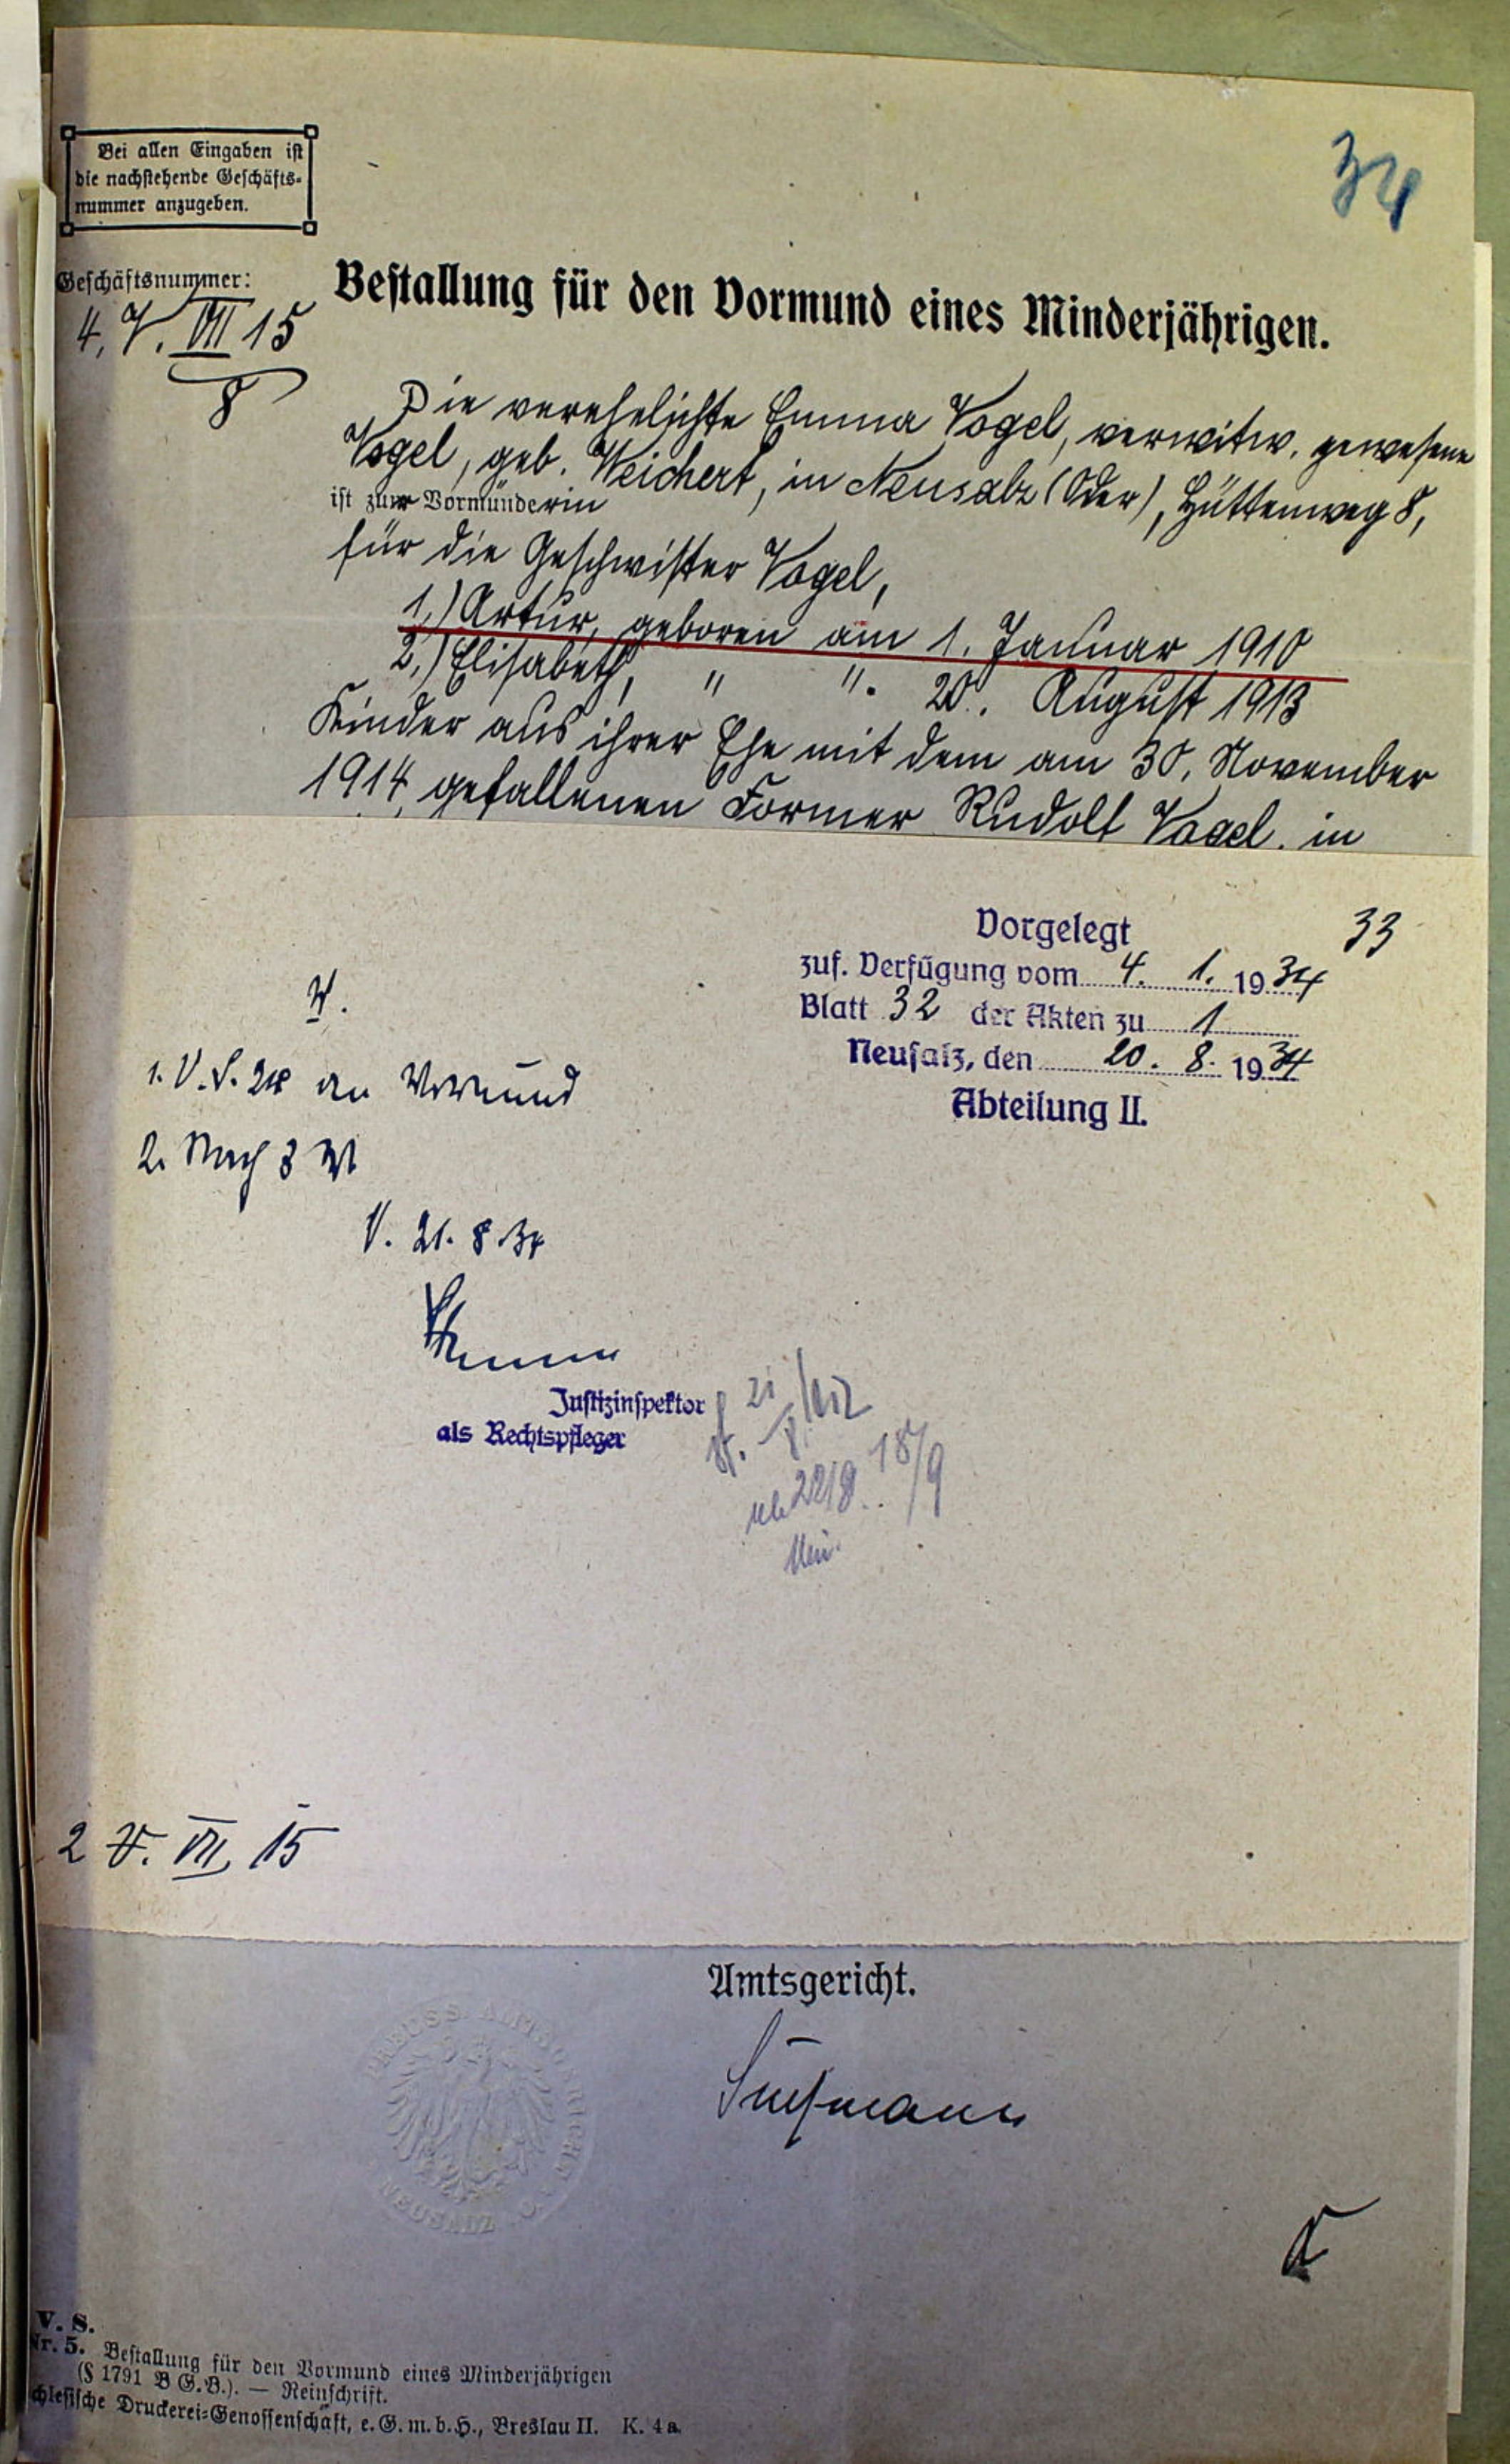 Bei allen Eingaben ist
die nachstehende Geschäfts-
nummer anzugeben.
34
Geschäftsnummer:
4. V. VII 15
8
Bestallung für den Vormund eines Minderjährigen.
Die verehelichte Emma Vogel, verwitw. gewesene
Vogel, geb. Weichert, in Neusalz (Oder), Hüttenweg 8,
ist zur Vormünderin
für die Geschwister Vogel,
1.) Artur, geboren am 1. Januar 1910
2.) Elisabeth, " " 20. August 1913
Kinder aus ihrer Ehe mit dem am 30. November
1914 gefallenen Former Rudolf Vogel, in
33
Vorgelegt
zuf. Verfügung vom 4. 1. 1934
Blatt 32 der Akten zu 1
Neusalz, den 20. 8. 1934
Abteilung II.
V.
1. V. S. an Vormund
2. Nach 3 M
V. 21. 8. 34
Justizinspektor
als Rechtspfleger
21
8
22/8. 18/9
2 V. VII, 15
Amtsgericht.
PREUSS. AMTSGERICHT
NEUSALZ O.
Süßmann
V. S.
Nr. 5. Bestallung für den Vormund eines Minderjährigen
(§ 1791 B G.B.). — Reinschrift.
chlesische Druckerei-Genossenschaft, e. G. m. b. H., Breslau II. K. 4a.